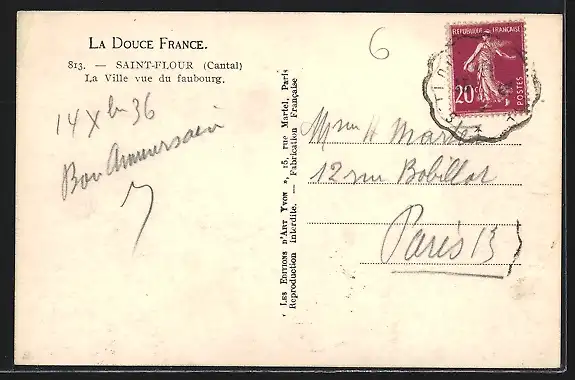 LA DOUCE FRANCE.
813. — SAINT-FLOUR (Cantal)
La Ville vue du faubourg.
14 Xbre 36
Bon Anniversaire
LES EDITIONS D'ART YVON », 15, rue Martel, Paris
Reproduction interdite. — Fabrication Française
6
REPUBLIQUE FRANÇAISE
20c
POSTES
Mme H
12 rue Bobillot
Paris 13